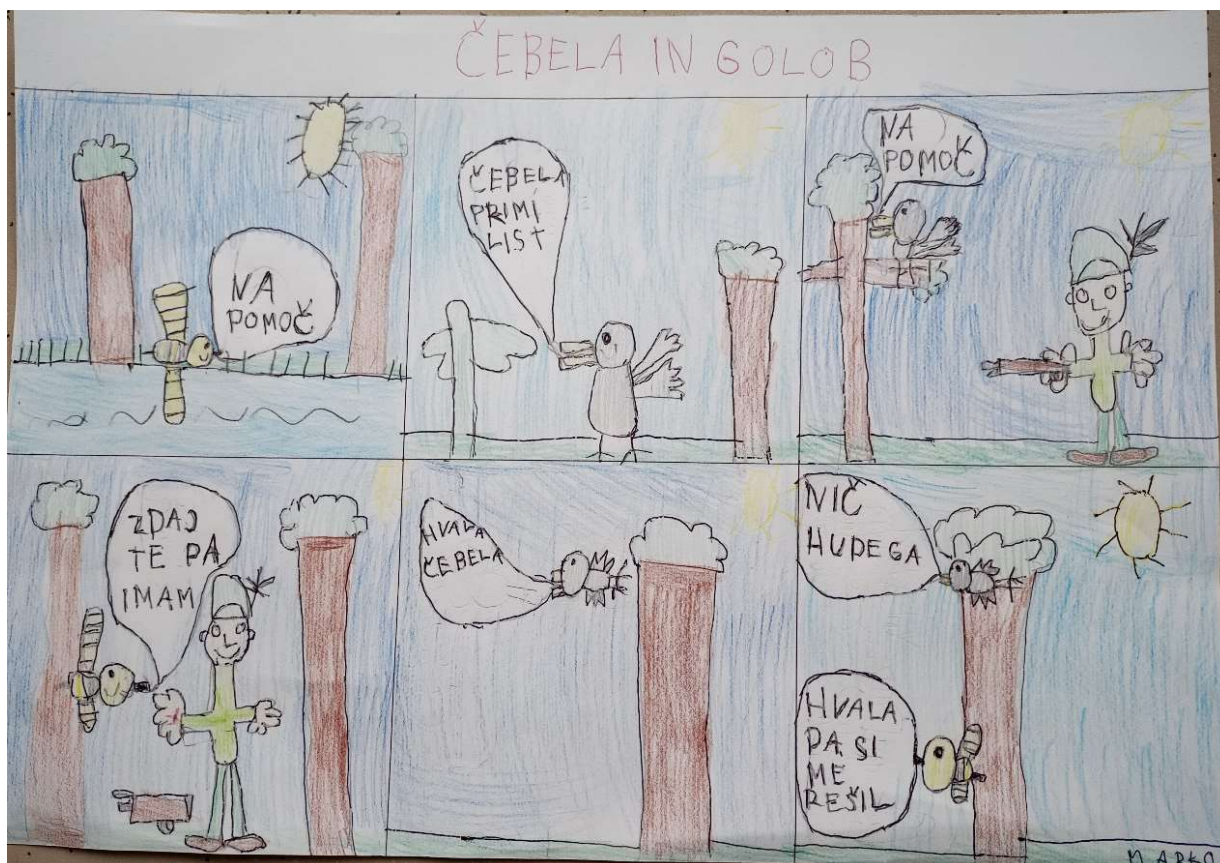 ČEBELA IN GOLOB
NA
POMOČ
ČEBELA
PRIMI
LIST
NA
POMOČ
ZDAJ
TE PA
IMAM
HVALA
ČEBELA
NIČ
HUDEGA
HVALA
DA SI
ME
REŠIL
MARKO